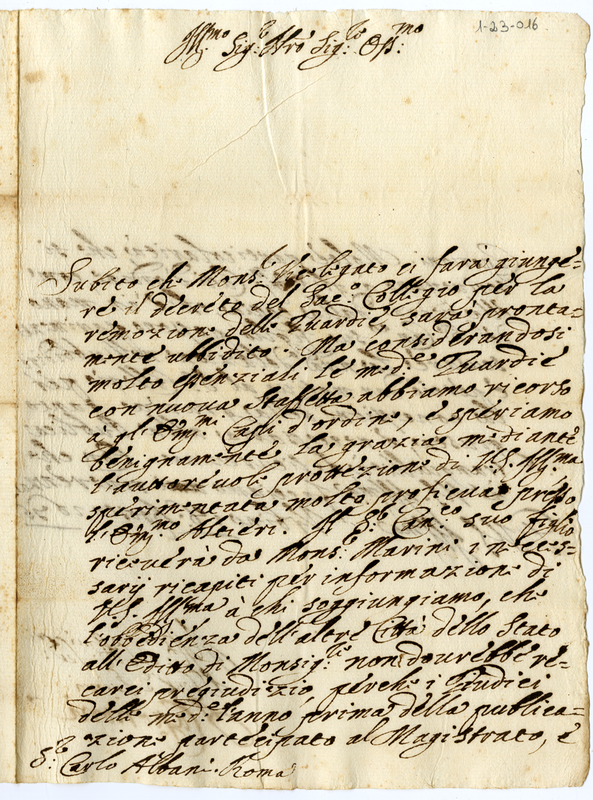 1-23-016
Ill:mo Sig:re Nro Sig:re Oss:mo
Subito che Mons:r Vicelegato ci farà giunge=
re il decreto del Sac:o Collegio per la
remozione delle Guardie, sarà pronta=
mente ubbidito. Ma considerandosi
molto essenziali le med:e Guardie
con nuova Staffetta abbiamo ricorso
à gl'Em:mi Capi d'ordine, e speriamo
benignamente la grazia mediante
l'auttorevole protezione di V.S. Ill:ma
sperimentata molto proficua presso
l'Em:mo Altieri. Il S:r Can:co suo figlio
riceverà da Mons:r Marini i neces=
sarij ricapiti per informazione di
V.S. Ill:ma à chi soggiungiamo, che
l'obbedienza dell'altre Città dello Stato
all'Editto di Monsig:re non dourebbe re=
carci pregiudizio, perche i Giudici
delle med:e l'anno prima della publica=
zione partecipato al Magistrato, è
S:r Carlo Albani. Roma